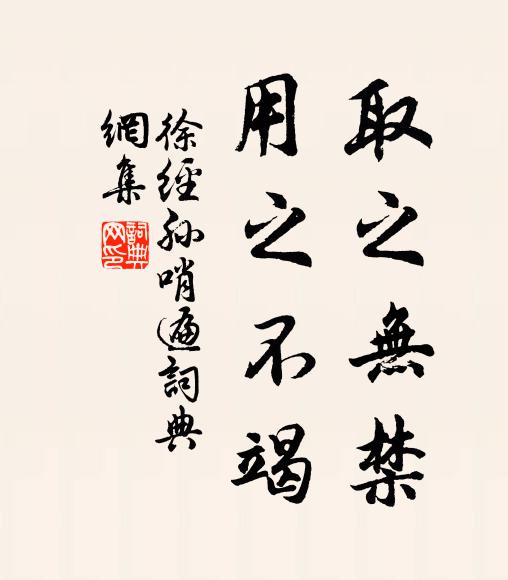 取之無禁
用之不竭
徐經孫哨遍詞典
網集
詞典
网印